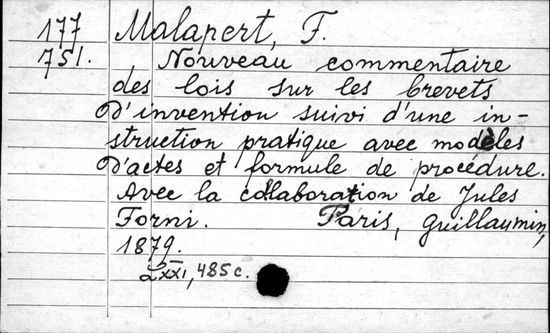 177 Malapert, F.
751. Nouveau commentaire
des lois sur les brevets
d'invention suivi d'une in-
struction pratique avec modèles
d'actes et formule de procédure.
Avec la collaboration de Jules
Forni. Paris, Guillaumin,
1879.
LXXI, 485 c.